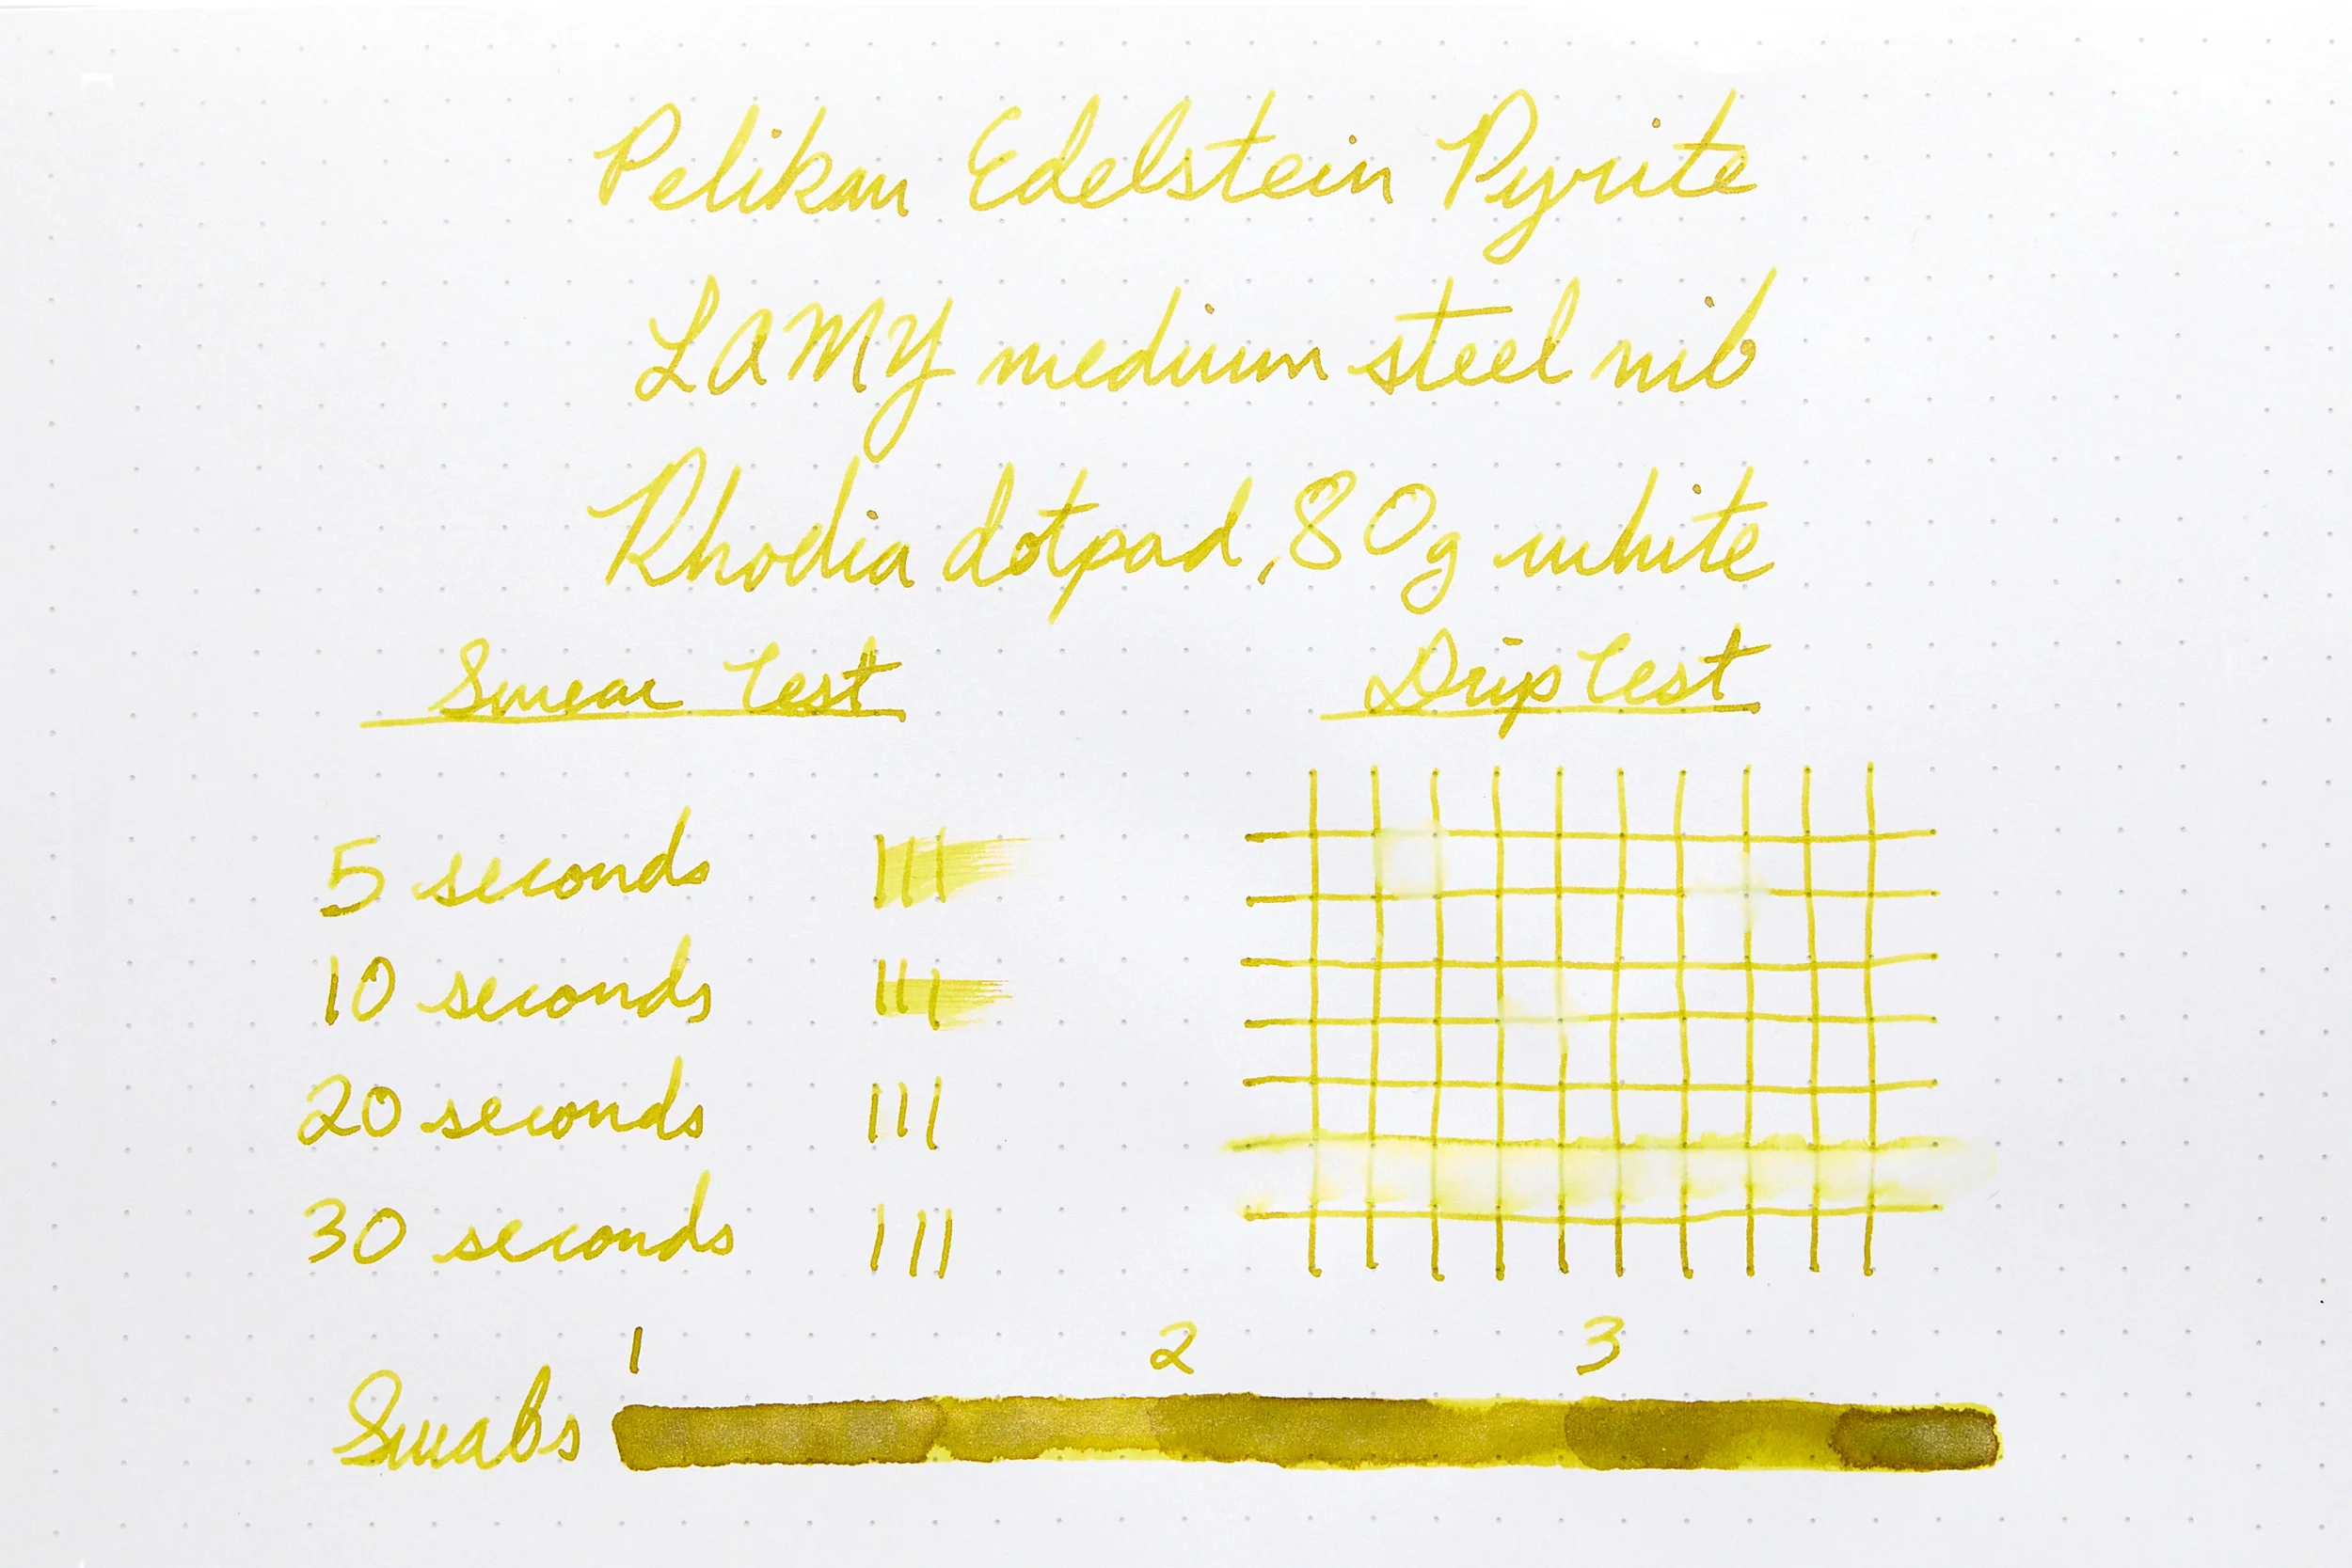 Pelikan Edelstein Pyrite
LAMY medium steel nib
Rhodia dotpad, 80g white
Smear Test
Drip Test
5 seconds
10 seconds
20 seconds
30 seconds
1 2 3
Swabs